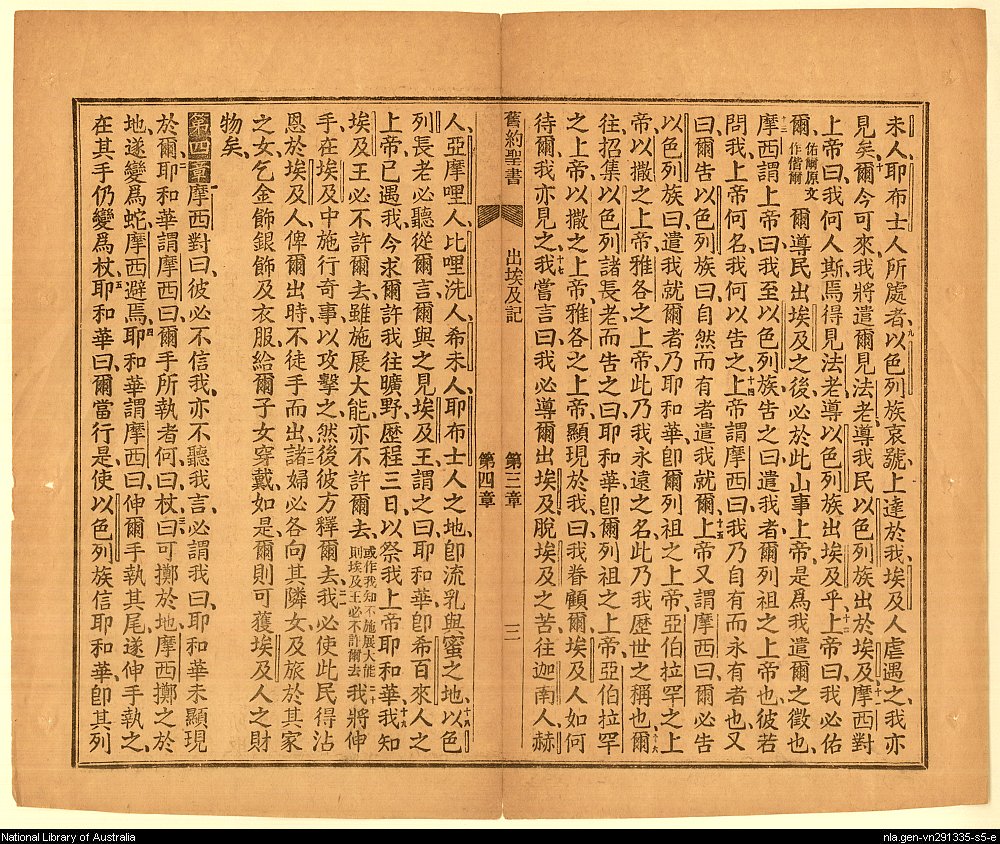 未人耶布士人所處者以色列族哀號上達於我埃及人虐遇之我亦
見矣爾今可來我將遣爾見法老導我民以色列族出於埃及摩西對
上帝曰我何人斯焉得見法老導以色列族出埃及乎上帝曰我必佑
爾佑爾原文作偕爾爾導民出埃及之後必於此山事上帝是爲我遣爾之徵也
摩西謂上帝曰我至以色列族告之曰遣我者爾列祖之上帝也彼若
問我上帝何名我何以告之上帝謂摩西曰我乃自有而永有者也又
曰爾告以色列族曰自然而有者遣我就爾上帝又謂摩西曰爾必告
以色列族曰遣我就爾者乃耶和華卽爾列祖之上帝亞伯拉罕之上
帝以撒之上帝雅各之上帝此乃我永遠之名此乃我歷世之稱也爾
往招集以色列諸長老而告之曰耶和華卽爾列祖之上帝亞伯拉罕
之上帝以撒之上帝雅各之上帝顯現於我曰我眷顧爾埃及人如何
待爾我亦見之我嘗言曰我必導爾出埃及脫埃及之苦往迦南人赫
舊約聖書 出埃及記 第三章 三
第四章
人亞摩哩人比哩洗人希未人耶布士人之地卽流乳與蜜之地以色
列長老必聽從爾言爾與之見埃及王謂之曰耶和華卽希百來人之
上帝已遇我今求爾許我往曠野歷程三日以祭我上帝耶和華我知
埃及王必不許爾去雖施展大能亦不許爾去或作我知不施展大能則埃及王必不許爾去我將伸
手在埃及中施行奇事以攻擊之然後彼方釋爾去我必使此民得沾
恩於埃及人俾爾出時不徒手而出諸婦必各向其隣女及旅於其家
之女乞金飾銀飾及衣服給爾子女穿戴如是爾則可獲埃及人之財
物矣
第四章摩西對曰彼必不信我亦不聽我言必謂我曰耶和華未顯現
於爾耶和華謂摩西曰爾手所執者何曰杖曰可擲於地摩西擲之於
地遂變爲蛇摩西避焉耶和華謂摩西曰伸爾手執其尾遂伸手執之
在其手仍變爲杖耶和華曰爾當行是使以色列族信耶和華卽其列
National Library of Australia
nla.gen-vn291335-s5-e